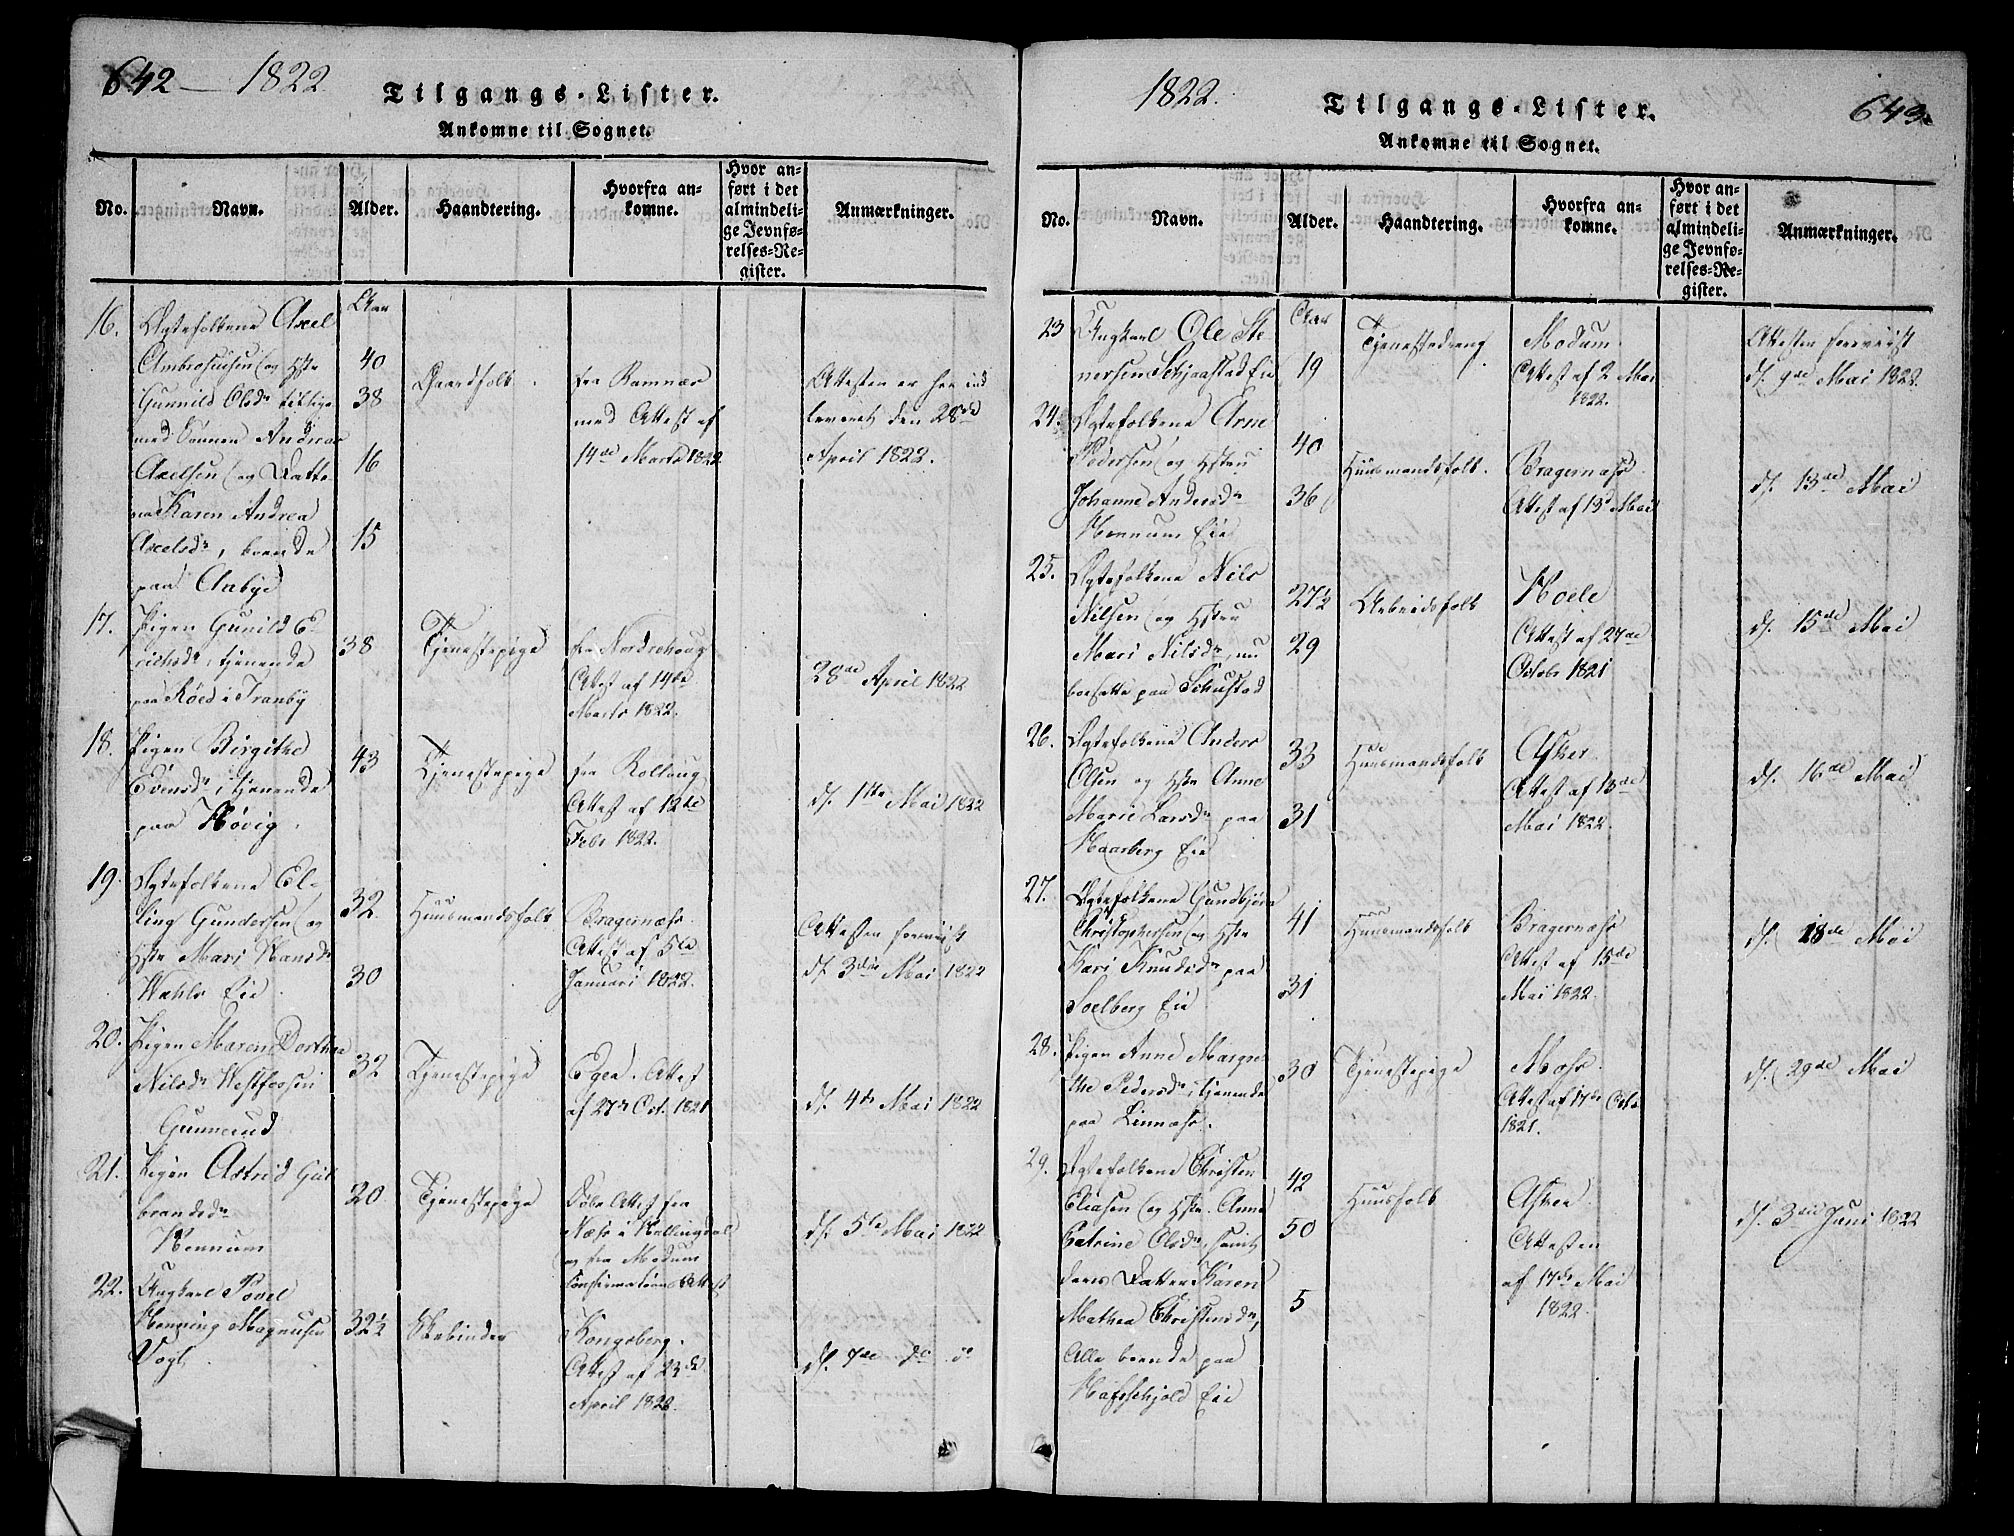 642 — 1822
Tilgangs-Lister.
Ankomne til Sognet.
No.
Navn.
Alder.
Haandtering.
Hvorfra an-
komne.
Hvor an-
ført i det
almindeli-
ge Jevnfø-
relses-Re-
gister.
Anmærkninger.
16.
Ægtefolkene Axel
Ambrosiusen og Hstr
Gunnild Olsdr tillige
med Sønnen Andreas
Axelsen og Datte
Karen Andrea
Axelsdr, boende
paa Aabye
Aar
40
38
16
15
Gaardfolk
fra Ramnæs
med Attest af
14de Marts 1822
Attesten er her ind
leveret den 28de
April 1822.
17.
Pigen Gunild E-
richsdr, tjenende
paa Røed i Tranby
38
Tjenestepige
fra Nordrehoug
Attest af 14de
Marts 1822.
28de April 1822
18.
Pigen Birgithe
Evensdr, tjenende
paa Høvig.
43
Tjenestepige
fra Rolloug
Attest af 12te
Febr 1822.
d. 1te Mai 1822
19.
Ægtefolkene El-
ling Gundersen og
Hstr Mari Hansdr
Wahls Eie
32
30
Huusmandsfolk
Bragernæs.
Attest af 5te
Januari 1822.
Attesten foreviist
d. 3die Mai 1822
20.
Pigen Maren Dorthea
Nilsdr Westfossen
Gunnerud
32
Tjenestepige
Eger. Attest
af 27de Oct. 1821
d. 4de Mai 1822
21.
Pigen Astrid Gul
brandsdr
Hennum
20
Tjenestepige
Døbe Attest fra
Næss i Hallingdal
og fra Modum
Confirmations Attest
d. 5te Mai 1822
22.
Ungkarl Povel
Henning Magnusen
Vogt
32½
Skobinder
Kongsberg.
Attest af 23de
April 1822.
d. 7de do do
1822.
Tilgangs-Lister.
643.
Ankomne til Sognet.
No.
Navn.
Alder.
Haandtering.
Hvorfra an-
komne.
Hvor an-
ført i det
almindeli-
ge Jevnfø-
relses-Re-
gister.
Anmærkninger.
23
Ungkarl Ole Ste
nersen Schjaastad Eie
Aar
19
Tjenestedreng
Modum
Attest af 2 Mai
1822.
Attesten foreviist
d. 9de Mai 1822.
24.
Ægtefolkene Arne
Pedersen og Hstru
Johanne Andersdr
Hennum Eie
40
36
Huusmandsfolk.
Bragernæss
Attest af 13de Mai
d. 13de Mai
25.
Ægtefolkene Nils
Nilsen og Hstru
Mari Nilsdr, nu
bosatte paa Schustad
27½
29
Arbeidsfolk
Hoele
Attest af 27de
Octobr 1821
d. 15de Mai
26.
Ægtefolkene Anders
Olsen og Hstr Anne
Marie Larsdr paa
Haarberg Eie
33
31
Huusmandsfolk
Asker
Attest af 13de
Mai 1822.
d. 16de Mai
27.
Ægtefolkene Gundbjørn
Christophersen og Hstr
Kari Knudsdr paa
Soelberg Eie
41
31
Huusmandsfolk
Bragernæss
Attest af 15de
Mai 1822.
d. 18de Mai
28.
Pigen Anne Margre
the Pedersdr, tjenende
paa Linnæss.
30
Tjenestepige
Moss.
Attest af 17de Octr
1821.
d. 29de Mai
29.
Ægtefolkene Christen
Eliasen og Hstr. Anne
Catrine Olsdr, samt
deres Datter Karen
Mathea Christensdr,
Alle boende paa
Hafschjold Eie
42
50
5
Huusfolk
Asker
Attesten
af 17de Mai
1822.
d. 3die Juni 1822